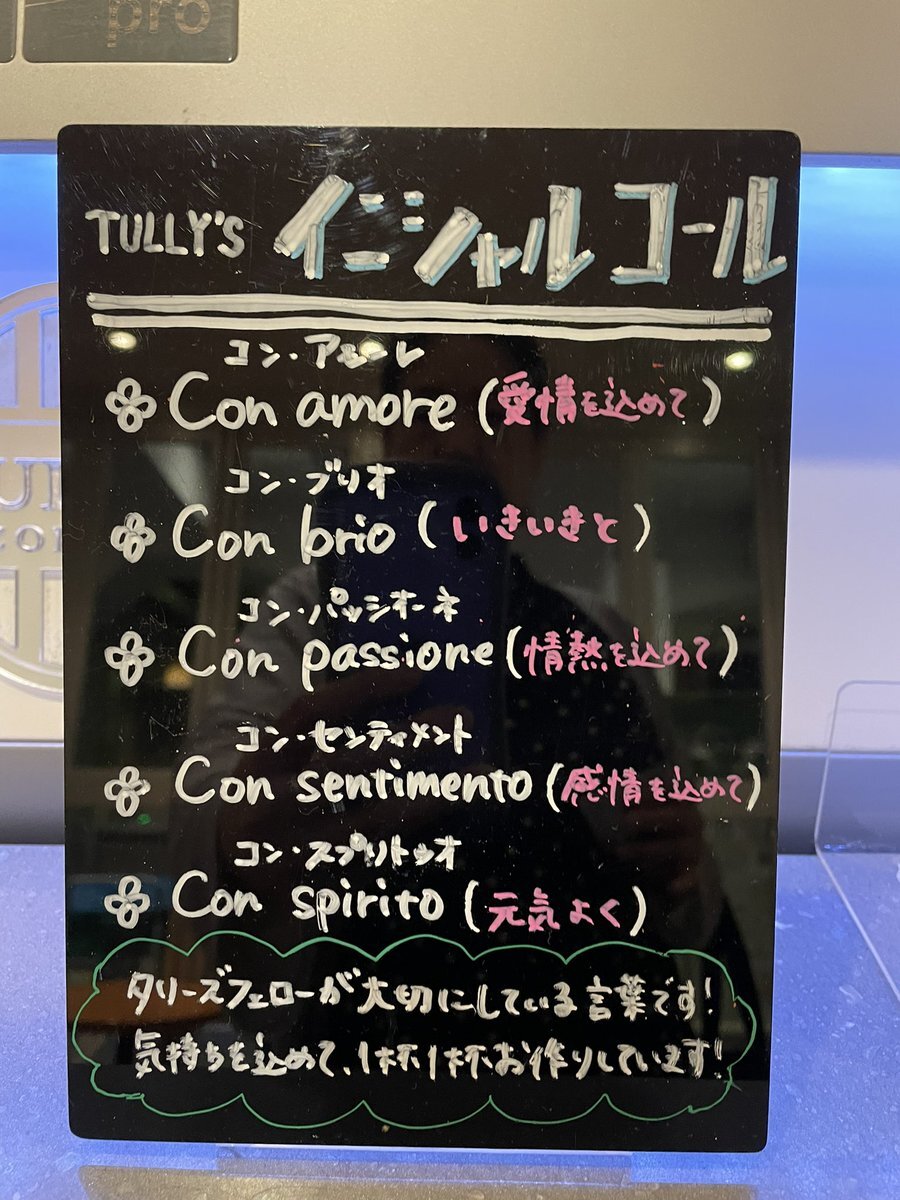 pro
TULLY'S イニシャルコール
コン・アモーレ
Con amore (愛情を込めて)
コン・ブリオ
Con brio (いきいきと)
コン・パッシオーネ
Con passione (情熱を込めて)
コン・センティメント
Con sentimento (感情を込めて)
コン・スプリトゥオ
Con spirito (元気よく)
タリーズフェローが大切にしている言葉です!
気持ちを込めて、1杯1杯お作りしています!